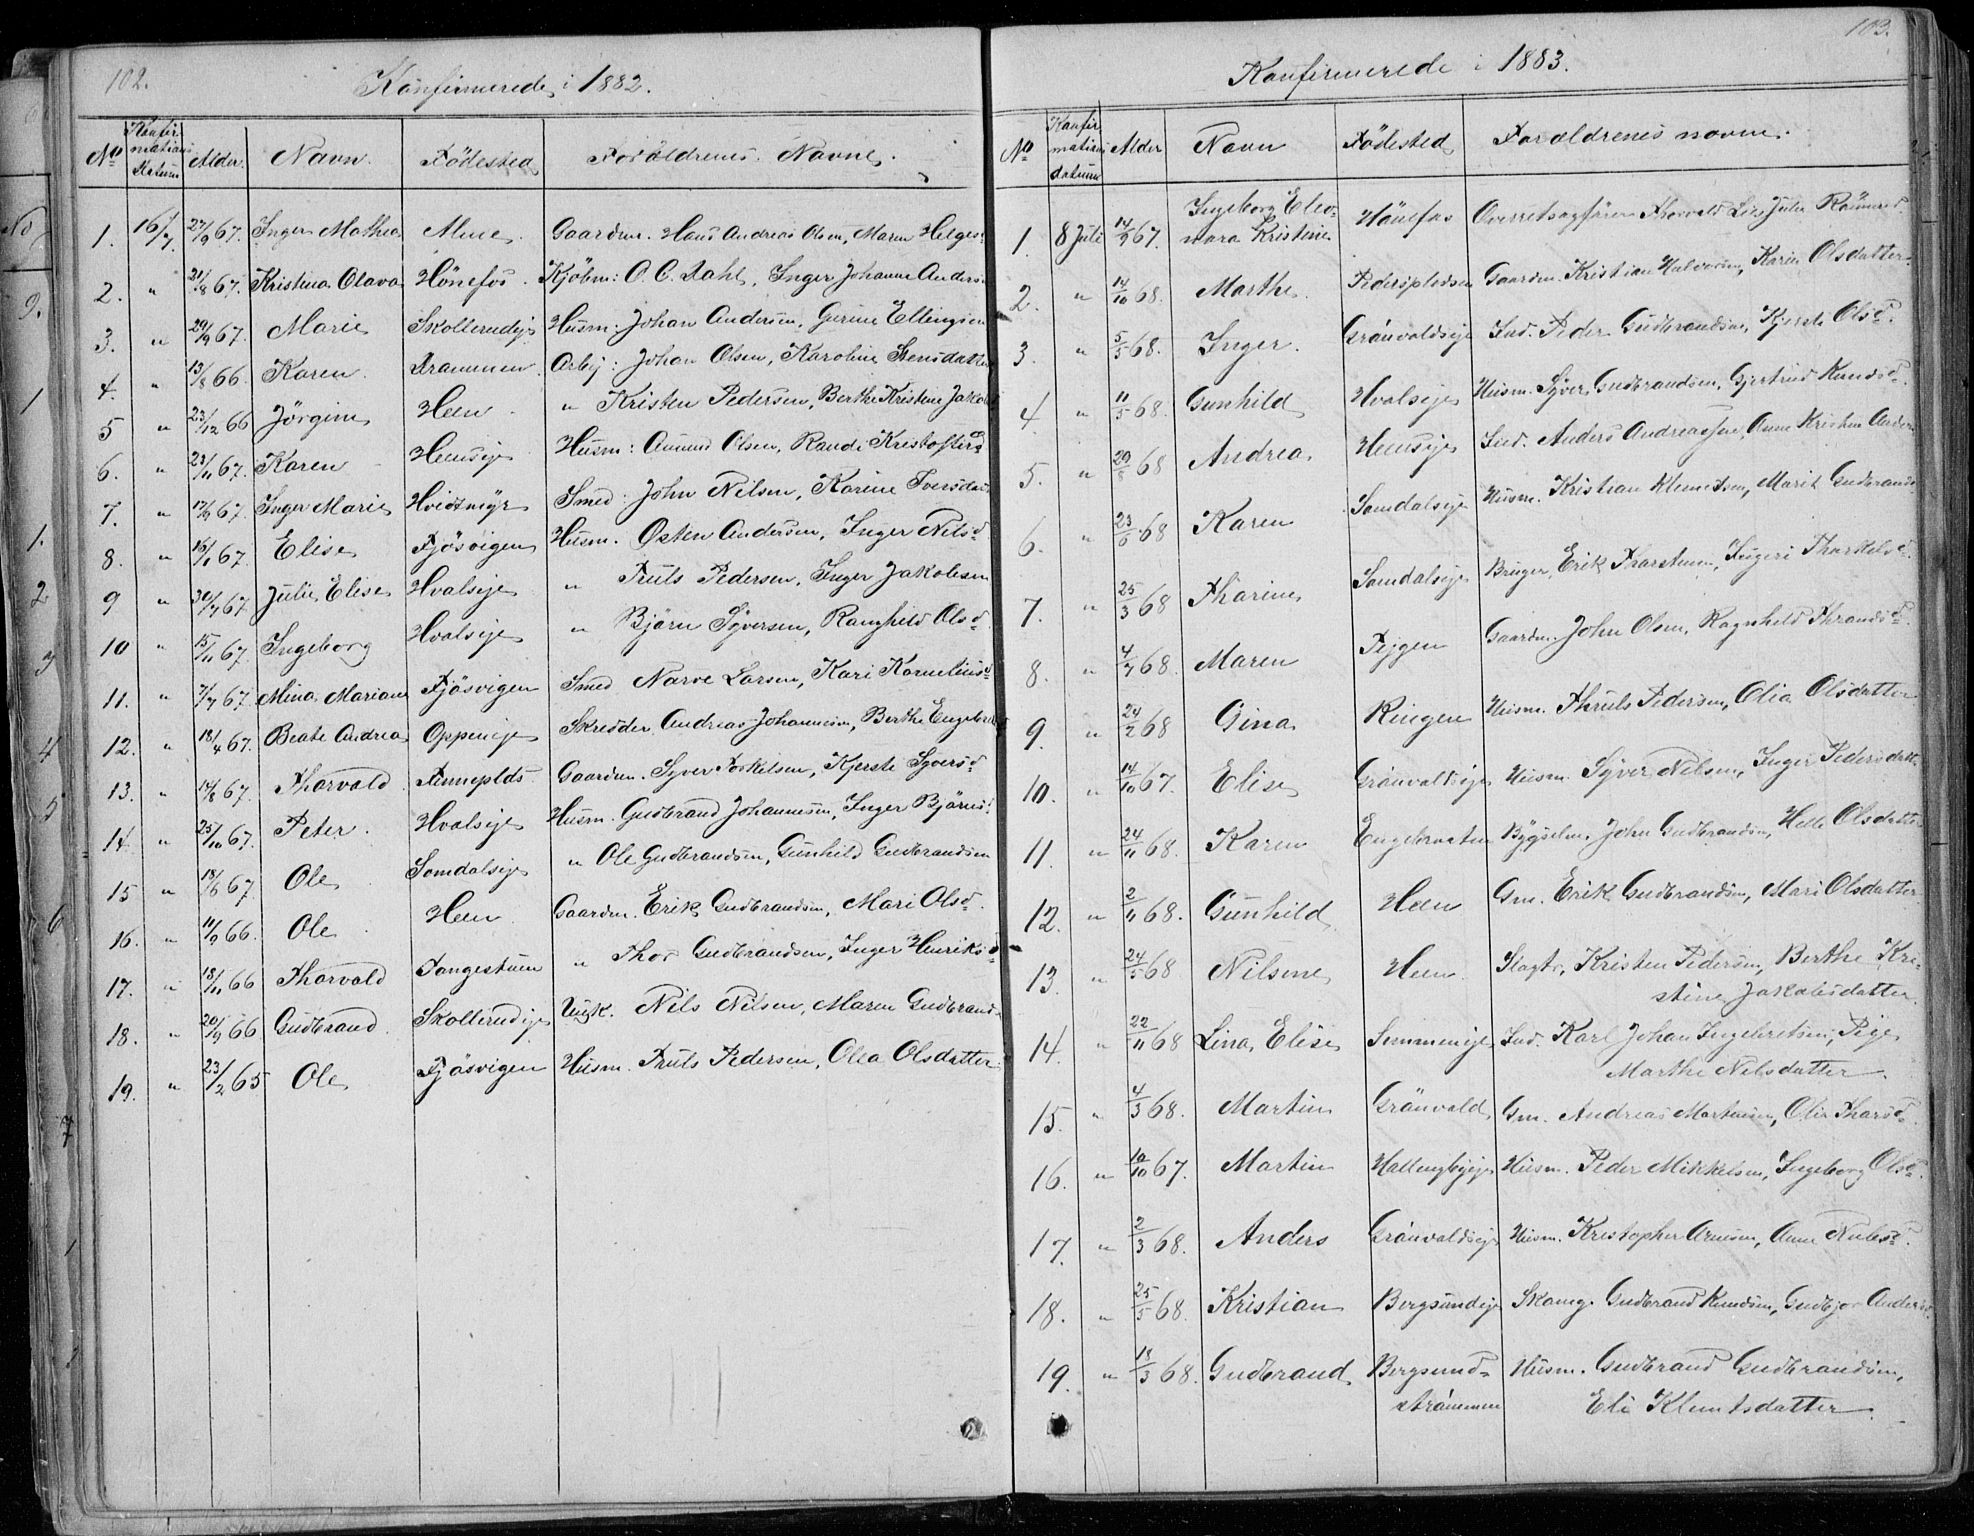 102.
Konfirmerede i 1882.
No Konfirmations Datum Alder. Navn. Födested Forældrenes Navne.
1. 16/7 27/9 67. Inger Mathea Alme Gaardm. Hans Andreas Olsen, Maren Helges
2. " 21/8 67. Kristina Olava Hönefos. Kjöbm: O. C. Dahl, Inger Johanne Anders
3. " 29/9 67. Marie Skollerudeje Husm: Johan Andersen, Gurine Ellingsen
4. " 13/8 66. Karen Drammen. Arbj: Johan Olsen, Karoline Stensdatter
5 " 23/12 66 Jörgine Heen " Kristen Pedersen, Berthe Kristine Jakobs
6. " 23/11 67. Karen Heenseje Husm: Amund Olsen, Randi Kristoffersd
7. " 17/9 67. Inger Marie Hvidtmyr Smed: John Nilsen, Karine Iversdat
8. " 16/1 67. Elise Fjösvigen Husm. Østen Andersen, Inger Nilsd
9 " 30/7 67. Julie Elise Hvalseje " Truls Pedersen, Inger Jakobsen
10 " 15/11 67. Ingeborg Hvalseje " Björn Syversen, Rangheld Olsd.
11. " 7/7 67. Mina Mariane Fjösvigen Smed Narve Larsen, Kari Korneliusd
12. " 18/4 67. Beate Andrea Oppeneje Skredder Andreas Johannesen, Berthe Engebre
13. " 14/8 67. Thorvald Finneplds. Gaardm. Syver Torkelsen, Kjersti Syversd
14. " 25/10 67. Peter. Hvalseje Husm. Gudbrand Johannesen, Inger Björns
15 " 18/6 67. Ole Somdalseje " Ole Gudbrandsen, Gunhild Gudbrandsen
16. " 11/9 66. Ole Heen Gaardm. Erik Gudbrandsen, Mari Olsd.
17. " 18/11 66 Thorvald Tangestuen " Thor Gudbrandsen, Inger Henriksd
18. " 20/9 66 Gudbrand. Skollerudeje Ungk. Nils Nilsen, Maren Gudbrands
19. " 23/2 65 Ole Fjösvigen Husm. Truls Pedersen, Olea Olsdatter
103.
Konfirmerede i 1883.
No Konfirmations datum Alder Navn Födested Forældrenes navne.
1. 8 Juli 14/9 67. Ingeborg Eleonora Kristine Hönefos Overretssagförer Thorvald
2. " 14/10 68. Marthe. Pedersplodsen Gaardm. Kristian Halvorsen, Karin Olsdatter
3 " 5/5 68. Inger. Grönvoldseje Ind. Peder Gudbrandsen, Kjersti Olsd.
4 " 11/5 68. Gunhild Hvalseje Husm. Syver Gudbrandsen, Gjertrud Knudsd.
5. " 29/8 68 Andrea Heenseje Ind. Anders Andreassen, Anne Kristine Anders
6. " 23/6 68 Karen Somdalseje Husm. Kristian Klemetsen, Marit Gudbrands
7. " 25/3 68 Tharine Somdalseje Bruger, Erik Tharstensen, Ingeri Tharkelsd.
8. " 4/7 68. Maren Fejgen Gaardm. John Olsen, Ragnheld Thrandsd.
9. " 24/2 68 Gina Ringen Husm. Thruls Pedersen, Olia Olsdatter
10. " 14/10 67. Elise Grönvoldseje Husm. Syver Nilsen, Inger Pedersdatt.
11. " 24/11 68. Karen Engebraaten Bygselm. John Gudbrandsen, Helle Olsdatte
12. " 2/11 68. Gunhild Heen Gm. Erik Gudbrandsen, Mari Olsdatter
13. " 24/5 68 Nilsine Heen Slagtr, Kristen Pedersen, Berthe Kristine Jakobsdatter
14. " 22/11 68 Lina Elise Simmeneje Ind. Karl Johan Ingebretsen, Pige
Marthe Nilsdatter
15. " 4/3 68. Martin Grönvold Gm. Andreas Martinsen, Olia Tharsd.
16. " 10/10 67. Martin Hallingbyeje Husm. Peder Mikkelsen, Ingeborg Olsd.
17. " 2/3 68. Anders Grönvoldseje Husm. Kristopher Arnesen, Anne Nilsd.
18. " 25/5 68. Kristian Bergsundeje Skomg. Gudbrand Knudsen, Gudbjor Anders
19. " 18/3 68. Gudbrand Bergsund- Husm. Gudbrand Gudbrandsen,
strömmen Eli Klemtsdatter